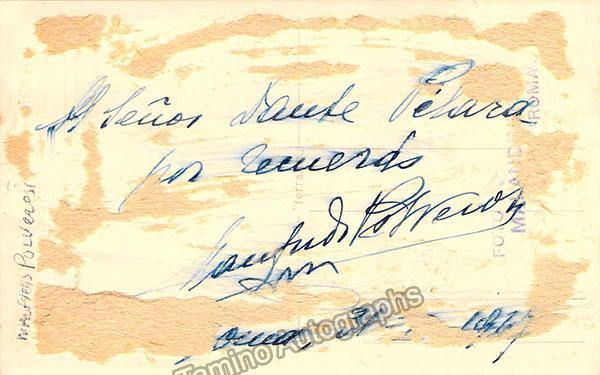 Al Señor Dante Pétara
por recuerdo
Manfredo Polverosi
1917
MANFREDO POLVEROSI
FOTO
ROMA
Tamino Autographs